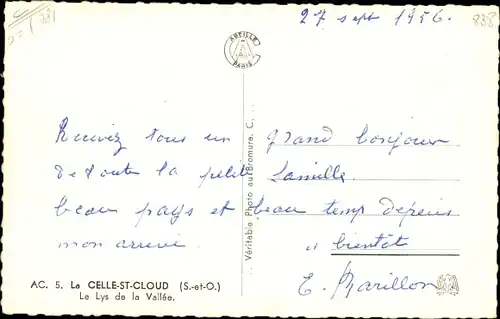 781
27 sept 1956.
838
ABEILLE
PARIS
Recevez tous un grand bonjour
de toute la petite famille
beau pays et beau temp depuis
mon arrivé a bientôt
AC. 5. La CELLE-ST-CLOUD (S.-et-O.)
Le Lys de la Vallée.
Véritable Photo au Bromure. C.